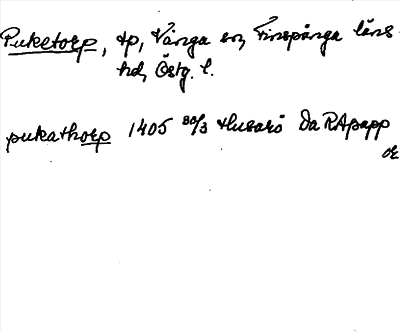 Puketorp, tp, Vånga sn, Finspånga läns
hd, Östg. l.
pukathorp 1405 30/3 Husarö Da RApapp
or